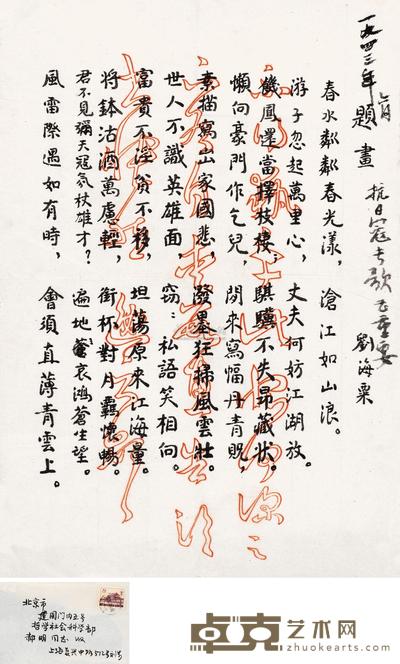 一九四三年六月題畫
抗日寇長歌 至重要
劉海粟
春水粼粼春光漾，滄江如山浪。
游子忽起萬里心，丈夫何妨江湖放。
饑鳳還當擇枝棲，騏驥不失昂藏狀。
懶向豪門作乞兒，閑來寫幅丹青貺，
素描寫出家國悲，發墨狂掃風雲壯。
世人不識英雄面，竊竊私語笑相向。
富貴不淫貧不移，坦蕩原來江海量。
將鉢沽酒萬慮輕，銜杯對月羈懷暢。
君不見彌天冠氛杖雄才？遍地哀鴻蒼生望。
風雷際遇如有時，會須直薄青雲上。
北京市
建國门内五号
哲学社会科学部
郝明同志收
上海复兴中路512号刘海
卓克艺术网
zhuokearts.com